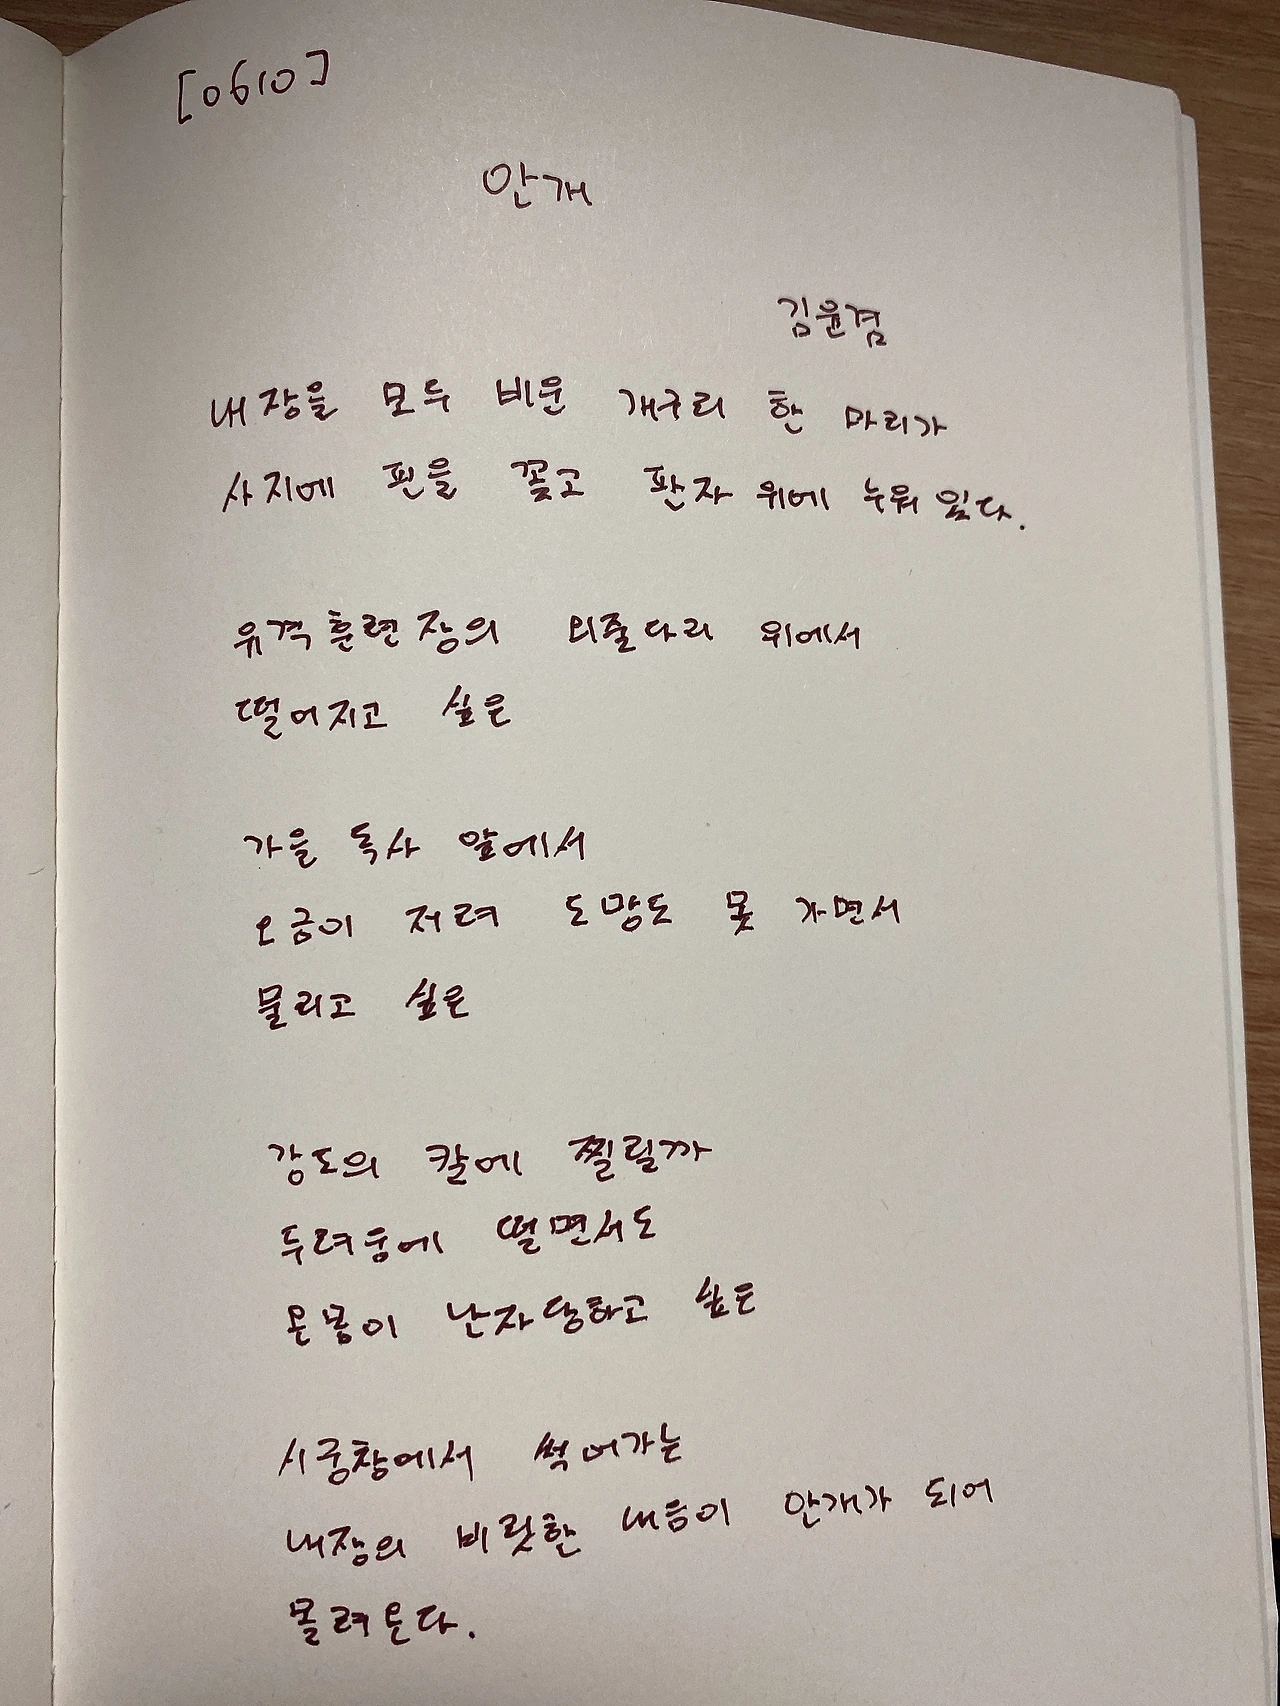 [0610]
안개
김윤겸
내장을 모두 비운 개구리 한 마리가
사지에 핀을 꽂고 판자 위에 누워 있다.
유격훈련장의 외줄다리 위에서
떨어지고 싶은
가을 독사 앞에서
오금이 저려 도망도 못 가면서
물리고 싶은
강도의 칼에 찔릴까
두려움에 떨면서도
온몸이 난자당하고 싶은
시궁창에서 썩어가는
내장의 비릿한 내음이 안개가 되어
몰려온다.